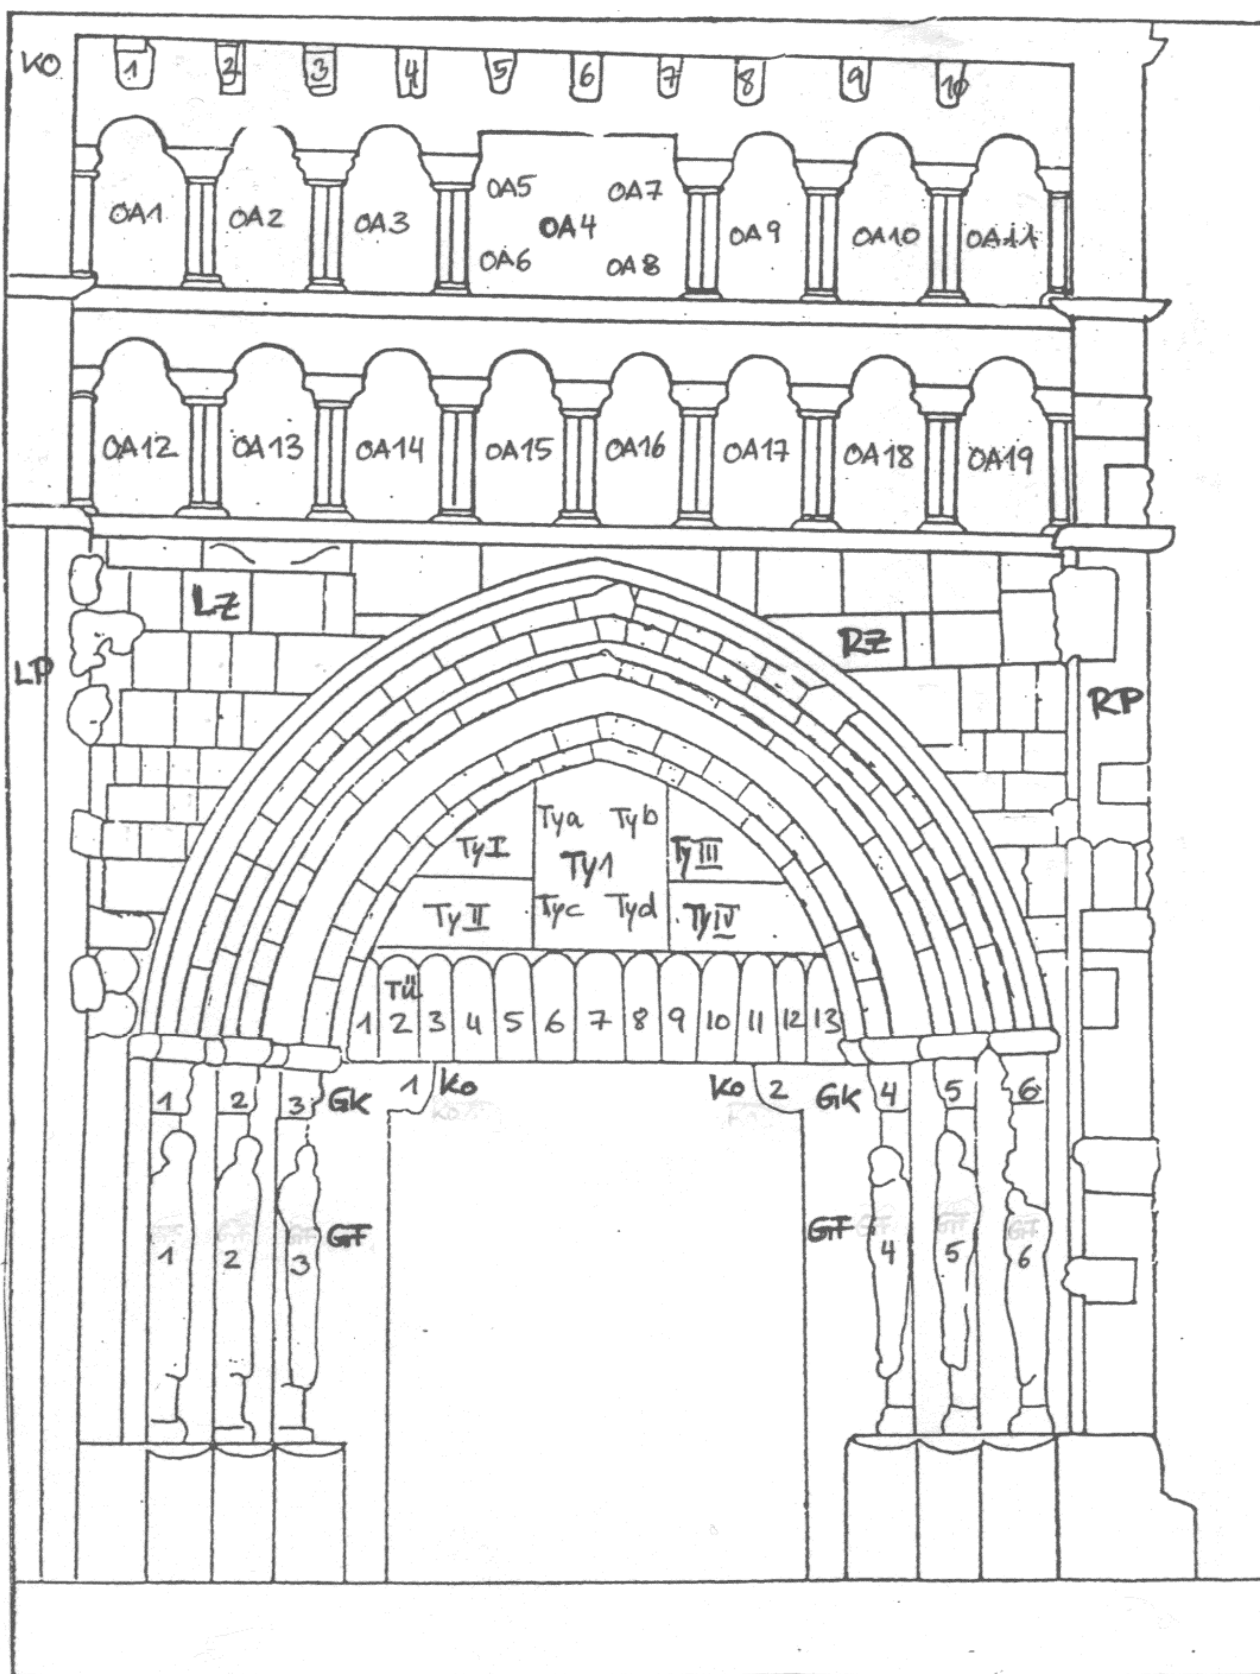 KO 1 2 3 4 5 6 7 8 9 10
OA1 OA2 OA3 OA5 OA7 OA9 OA10 OA11
OA4
OA6 OA8
OA12 OA13 OA14 OA15 OA16 OA17 OA18 OA19
LZ RZ
LP RP
Tya Tyb
TyI Ty1 TyIII
TyII Tyc Tyd TyIV
Tü
1 2 3 4 5 6 7 8 9 10 11 12 13
1 2 3 GK 1 Ko Ko 2 GK 4 5 6
GF GF GF GF GF GF GF GF
1 2 3 4 5 6